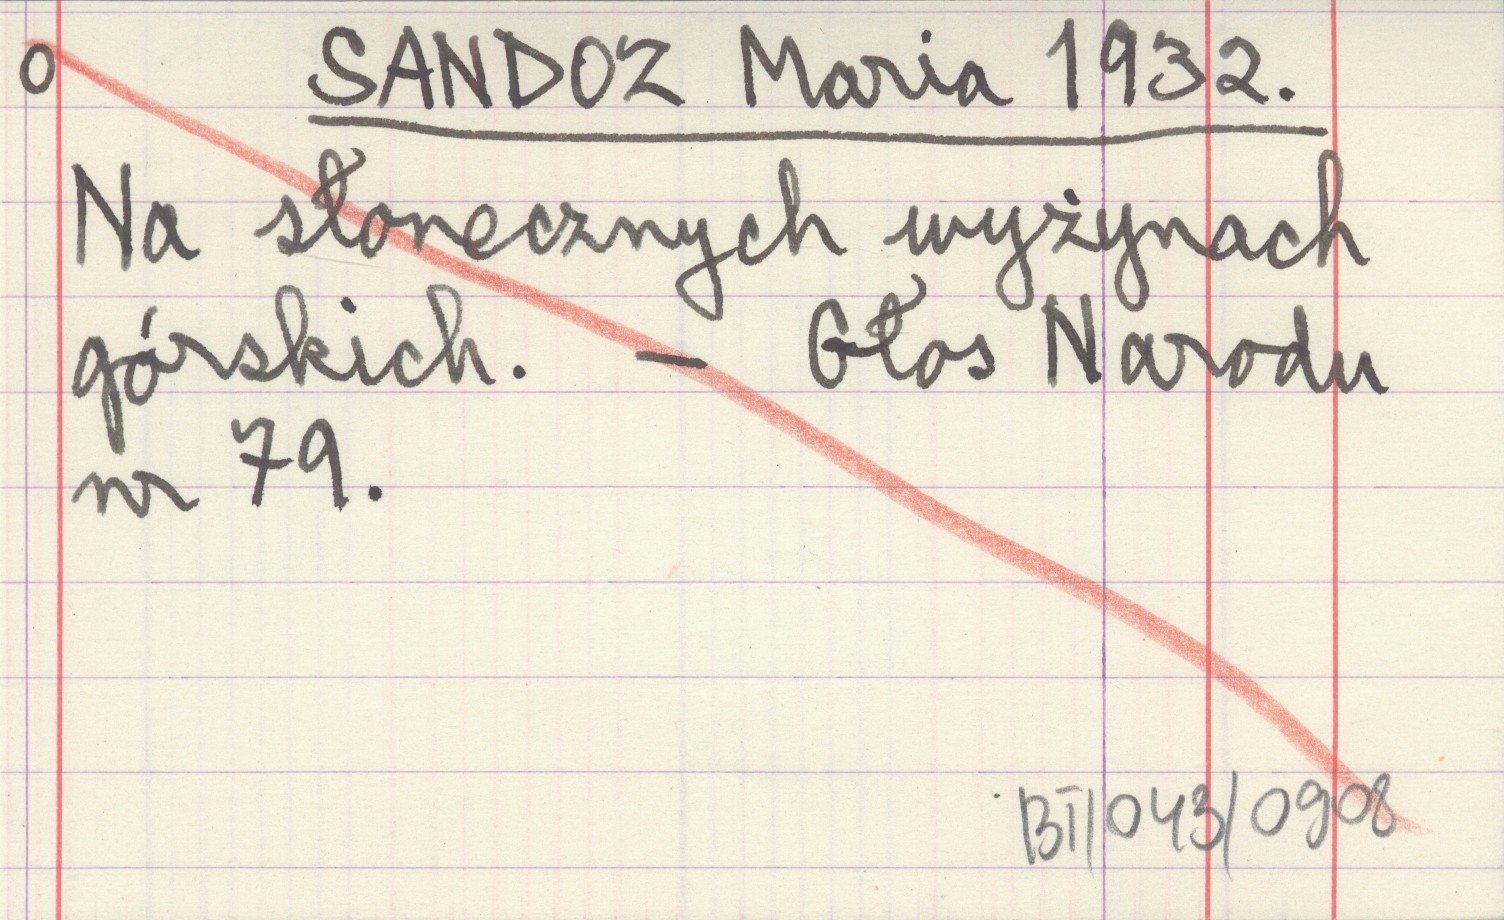 0 SANDOZ Maria 1932.
Na słonecznych wyżynach
górskich. — Głos Narodu
nr 79.
BT/043/0908